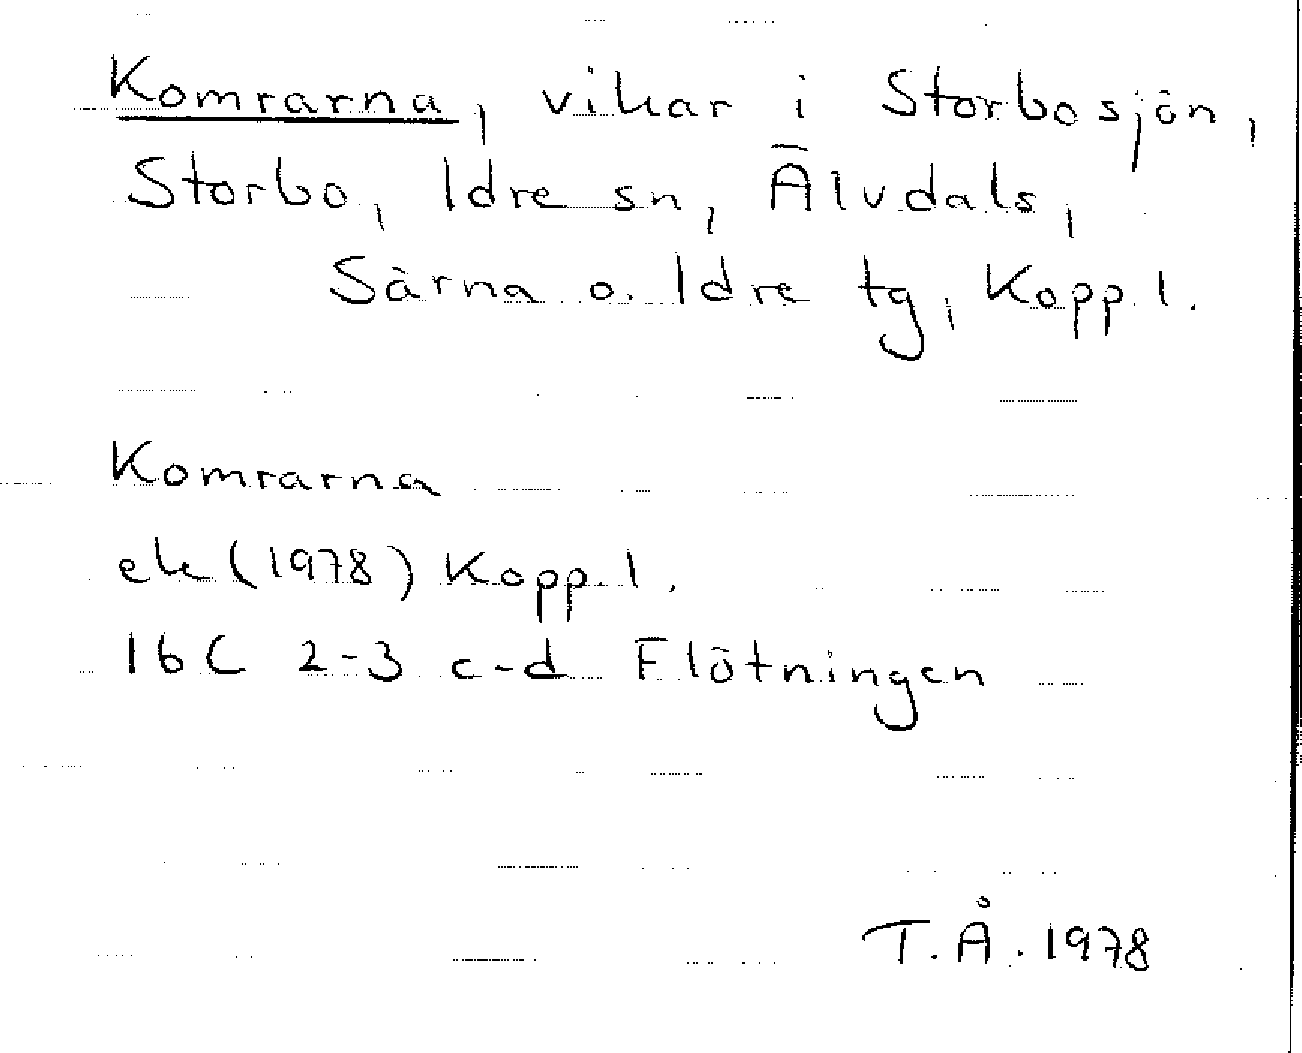 Komrarna, vikar i Storbosjön,
Storbo, Idre sn, Älvdals,
Särna o. Idre tg, Kopp. l.
Komrarna
ek (1978) Kopp. l.
16C 2-3 c-d Flötningen
T.Å. 1978